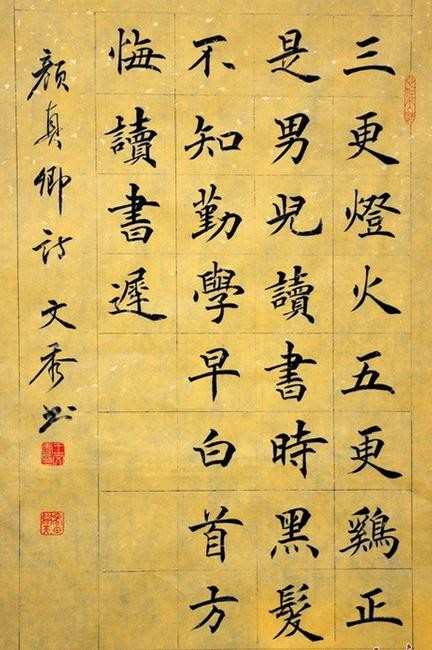 三更燈火五更鷄正
是男児讀書時黑髮
不知勤學早白首方
悔讀書遲
顏真卿詩文秀书